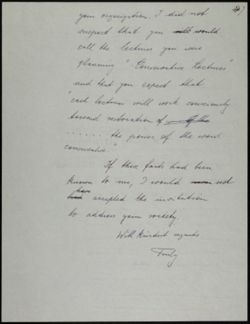 your organization. I did not
suspect that you would
call the lectures you were
planning "Consecutive Lectures"
and that you expect that
"each lecture will work consciously
toward restoration of
...... the power of the word
If these facts had been
known to me, I would not
have accepted the invitation
to address your society.
With kindest regards